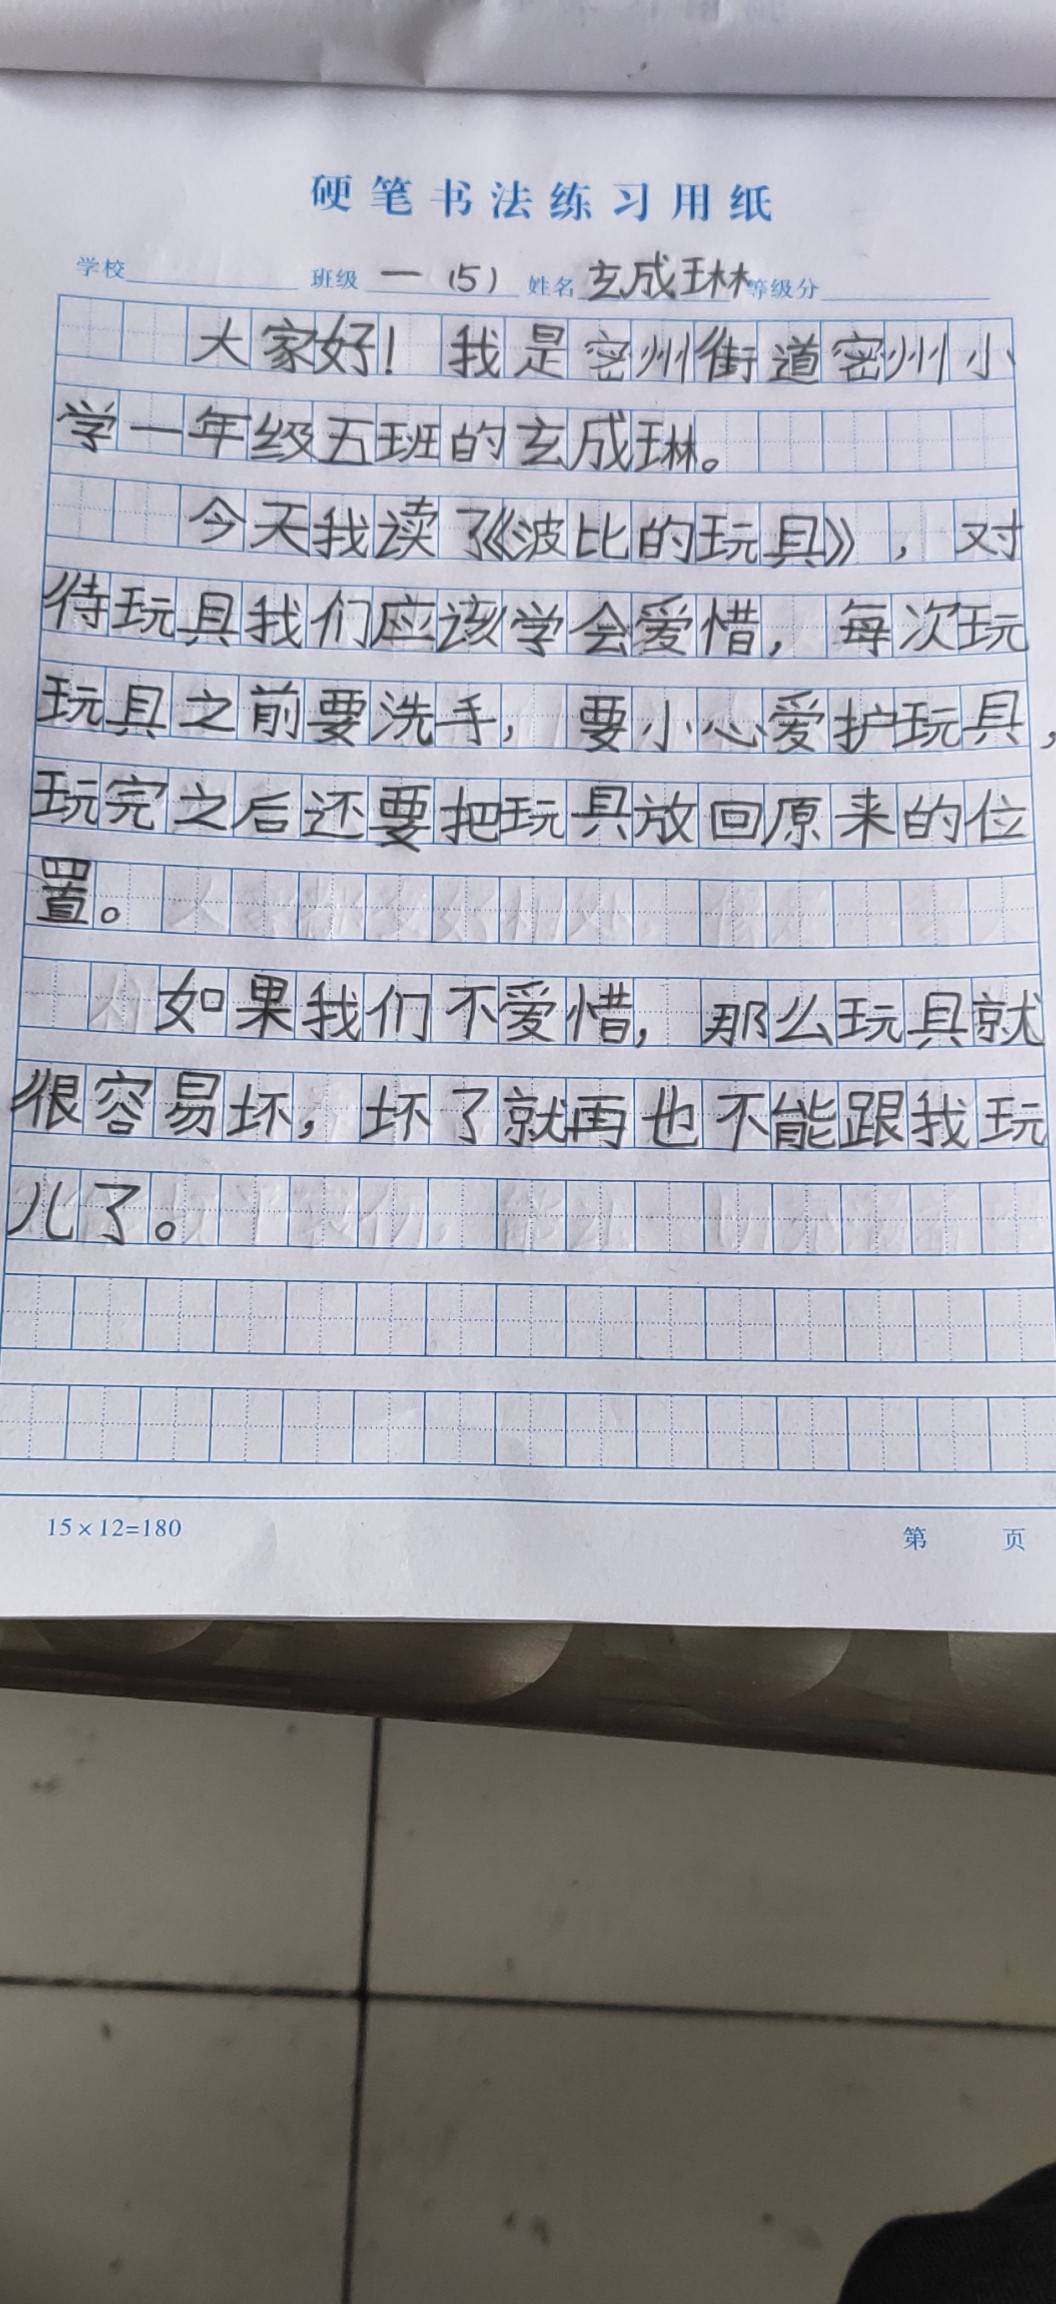 硬笔书法练习用纸
学校 班级 一(5) 姓名 玄成琳 等级分
大家好！我是密州街道密州小
学一年级五班的玄成琳。
今天我读了《波比的玩具》，对
待玩具我们应该学会爱惜，每次玩
玩具之前要洗手，要小心爱护玩具，
玩完之后还要把玩具放回原来的位
置。
如果我们不爱惜，那么玩具就
很容易坏，坏了就再也不能跟我玩
儿了。
15×12=180 第 页